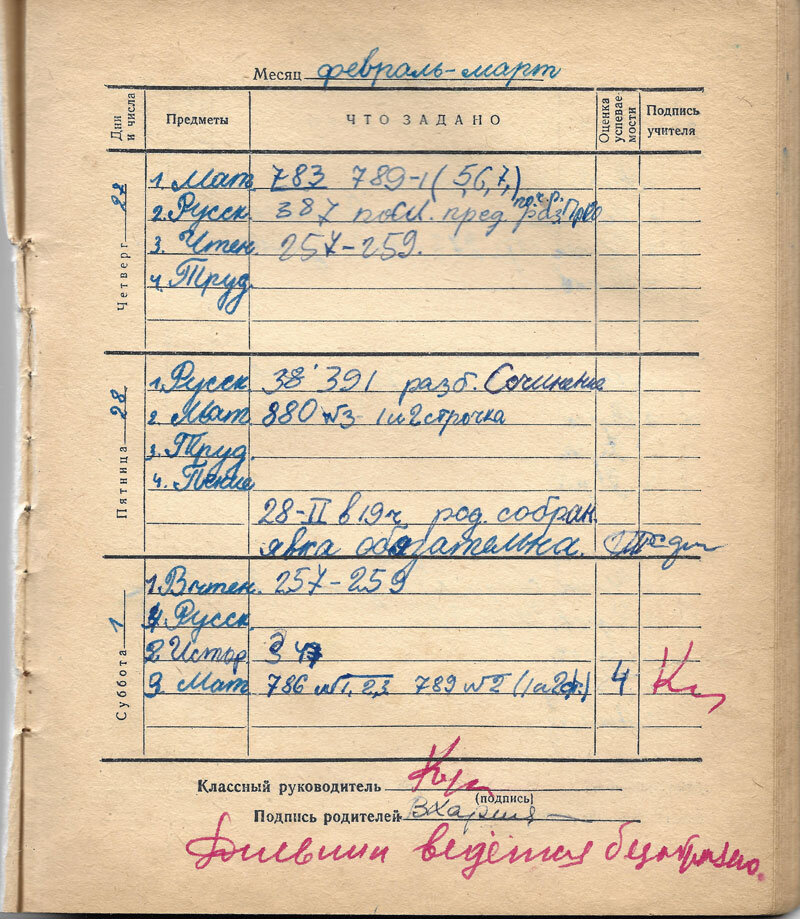 Месяц февраль-март
Дни и числа Предметы ЧТО ЗАДАНО Оценка успевае-мости Подпись учителя
Четверг 27
1. Мат. 783 789-1 (5,6,7,)
2. Русск. 387 пред. раз.
3. Чтен. 257-259.
4. Труд.
Пятница 28
1. Русск 391 разб. Сочинение
2. Мат. 880 №3 1 и 2 строчка
3. Труд.
4. Пение
28-II в 19ч род. собран.
явка обязательна.
Суббота 1
1. Вчтен. 257-259
Русск.
2 Истор
3. Мат 786 №1,2,3 789 №2 (1 и 2 ) 4
Классный руководитель
(подпись)
Подпись родителей
Дневник ведётся безобразно.